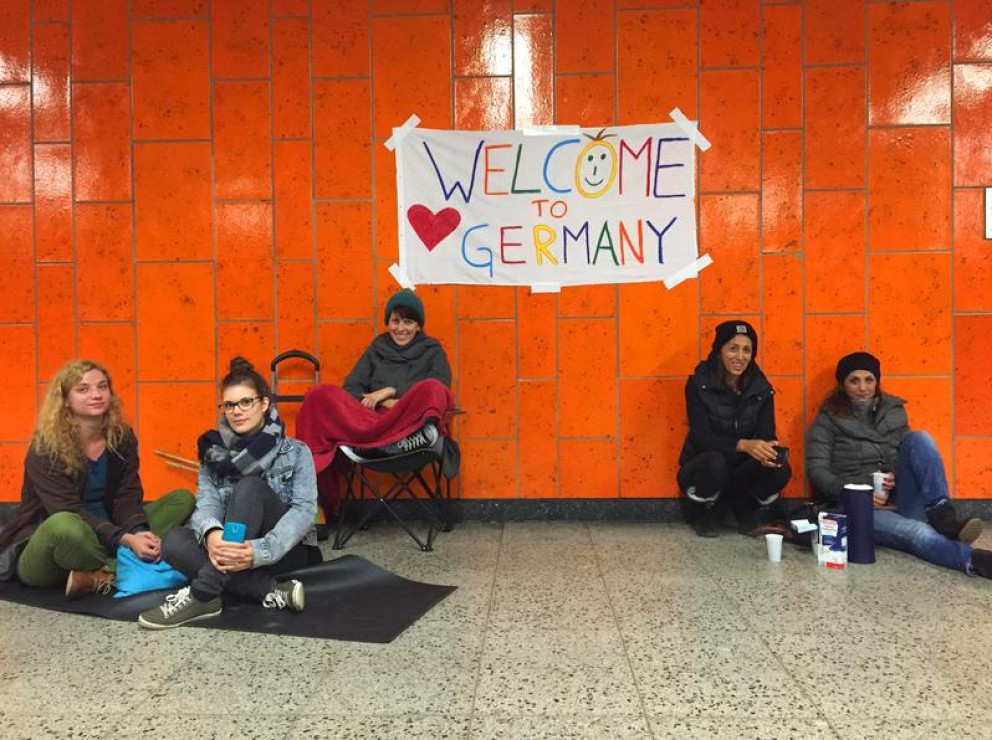 WELCOME
TO
GERMANY